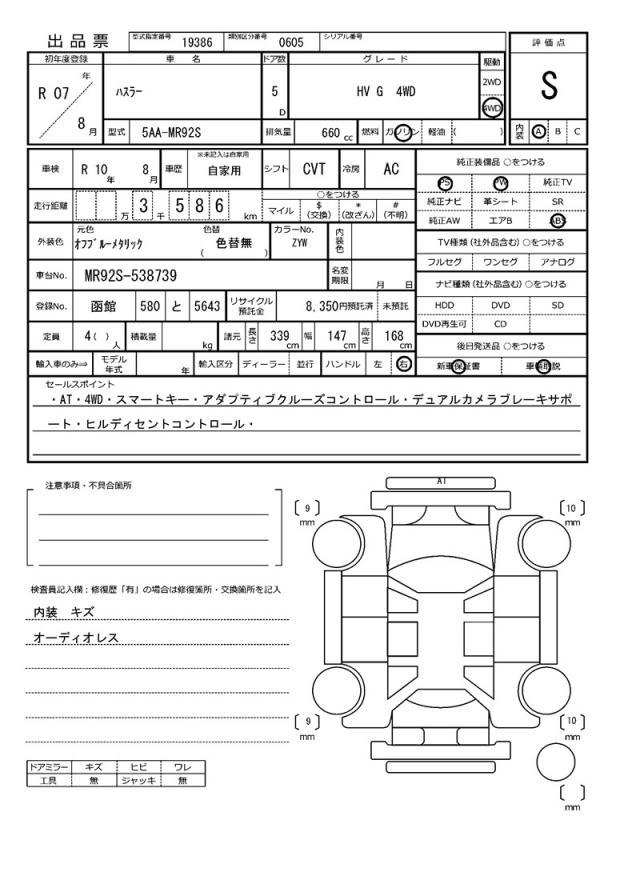 出品票 型式指定番号 19386 類別区分番号 0605 シリアル番号
評価点
S
内装 A B C
初年度登録 車名 ドア数 グレード 駆動
R 07 年 8 月
ハスラー 5 D HV G 4WD
2WD
4WD
型式 5AA-MR92S 排気量 660 cc 燃料 ガソリン 軽油 ( )
車検 R 10 年 8 月 車歴 ※未記入は自家用 自家用 シフト CVT 冷房 AC
走行距離 万 3 千 5 8 6 km
○をつける
マイル $ (交換) * (改ざん) # (不明)
外装色 元色 オフブルーメタリック 色替 色替無 ( ) カラーNo. ZYW 内装色
車台No. MR92S-538739 名変期限 月 日
登録No. 函館 580 と 5643 リサイクル預託金 8,350円預託済 未預託
定員 4( ) 人 積載量 kg 諸元 長さ 339 cm 幅 147 cm 高さ 168 cm
輸入車のみ⇒ モデル年式 年 輸入区分 ディーラー 並行 ハンドル 左 右
純正装備品 ○をつける
PS PW 純正TV
純正ナビ 革シート SR
純正AW エアB ABS
TV種類 (社外品含む) ○をつける
フルセグ ワンセグ アナログ
ナビ種類 (社外品含む) ○をつける
HDD DVD SD
DVD再生可 CD
後日発送品 ○をつける
新車保証書 車輌取説
セールスポイント
・AT・4WD・スマートキー・アダプティブクルーズコントロール・デュアルカメラブレーキサポ
ート・ヒルディセントコントロール・
注意事項・不具合箇所
検査員記入欄：修復歴「有」の場合は修復箇所・交換箇所を記入
内装 キズ
オーディオレス
ドアミラー キズ ヒビ ワレ
工具 無 ジャッキ 無
A1
[ 9 ] mm
[ 10 ] mm
[ 9 ] mm
[ 10 ] mm
[ ] mm